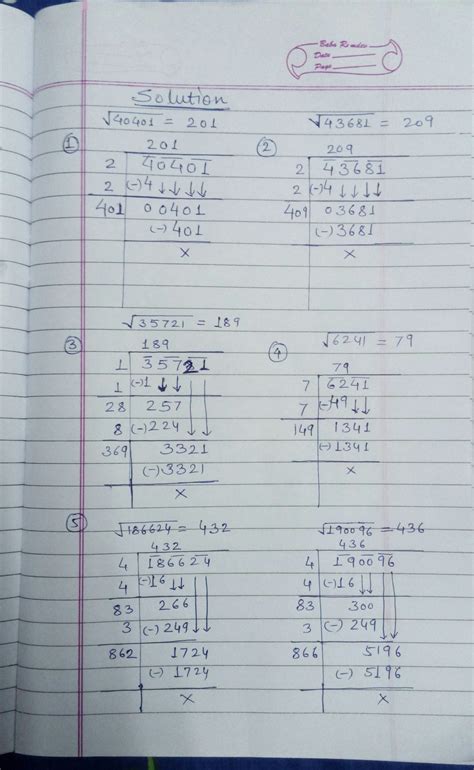 Babu Ramdev
Date
Page
Solution
√40401 = 201
① 201
2 40401
2 (-)4 ↓ ↓ ↓ ↓
401 00401
(-) 401
×
√43681 = 209
② 209
2 43681
2 (-)4 ↓ ↓ ↓ ↓
409 03681
(-) 3681
×
√35721 = 189
③ 189
1 35721
1 (-)1 ↓ ↓
28 257
8 (-)224
369 3321
(-) 3321
×
√6241 = 79
④ 79
7 6241
7 (-)49 ↓ ↓
149 1341
(-)1341
×
⑤ √186624 = 432
432
4 186624
4 (-)16 ↓ ↓
83 266
3 (-) 249
862 1724
(-) 1724
×
√190096 = 436
436
4 190096
4 (-)16 ↓ ↓
83 300
3 (-) 249
866 5196
(-) 5196
×